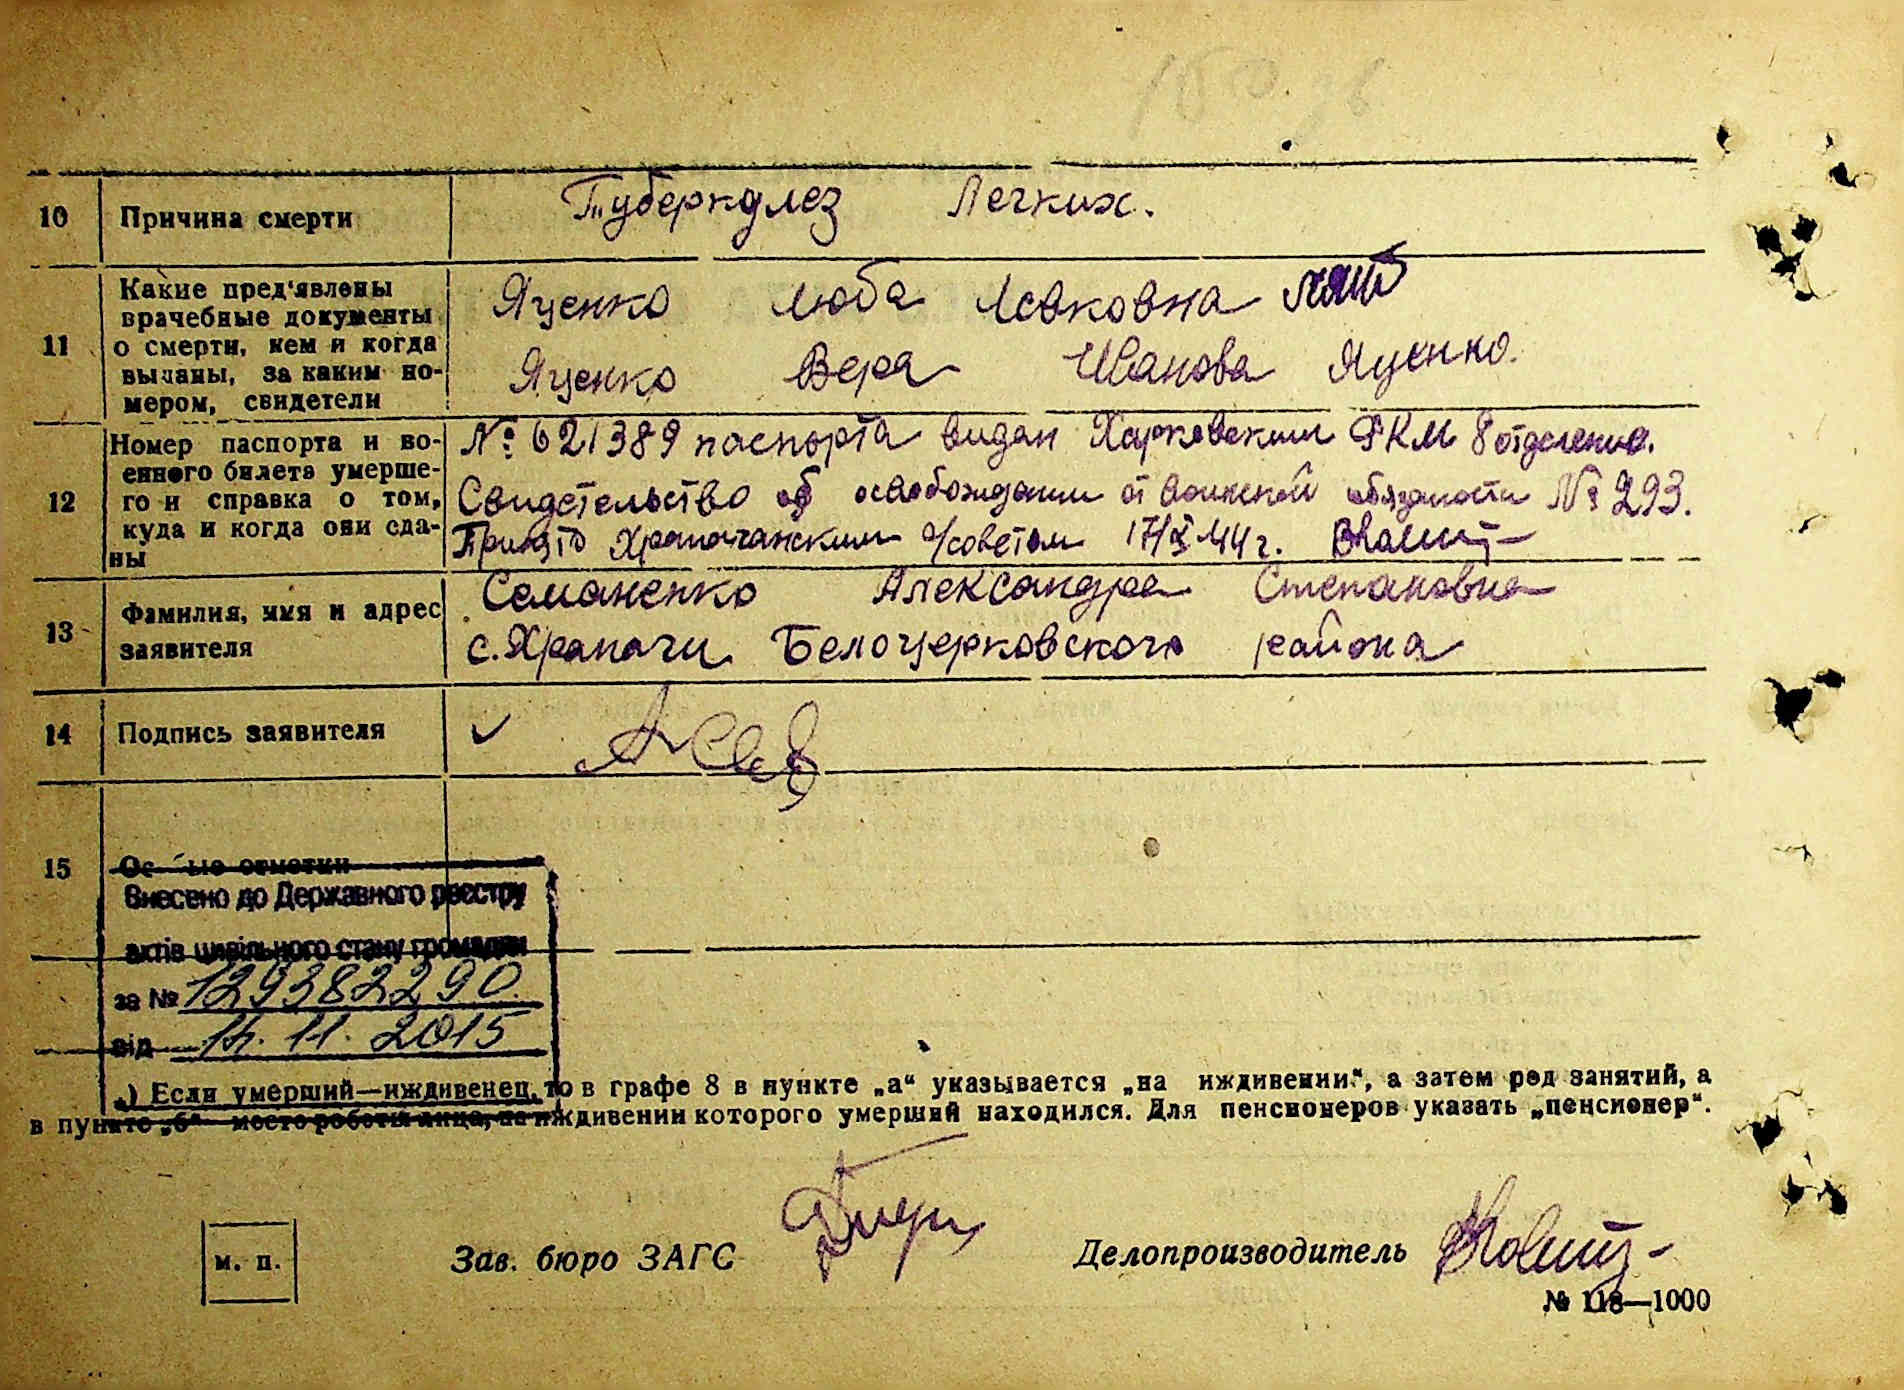 10 Причина смерти Туберкулез Легких.
11 Какие пред'явлены врачебные документы о смерти, кем и когда выданы, за каким номером, свидетели
Яценко Люба Левковна
Яценко Вера Иванова Яценко.
12 Номер паспорта и военного билета умершего и справка о том, куда и когда они сданы
№ 621389 паспорта видан Харковским РКМ 8 отделение.
Свидетельство об освобождении от воинской обязаности № 293.
Принято Храпачанским с/советом 17/X-44 г.
13 Фамилия, имя и адрес заявителя
Семаненко Александра Степановна
с. Храпачи Белоцерковского района
14 Подпись заявителя
15 Особые отметки
Внесено до Державного реєстру
актів цивільного стану громадян
за № 129382290.
від 14.11.2015
*) Если умерший—иждивенец, то в графе 8 в пункте „а“ указывается „на иждивении“, а затем род занятий, а
в пункте „б“ место работы лица, на иждивении которого умерший находился. Для пенсионеров указать „пенсионер“.
м. п. Зав. бюро ЗАГС Делопроизводитель
№ 118—1000